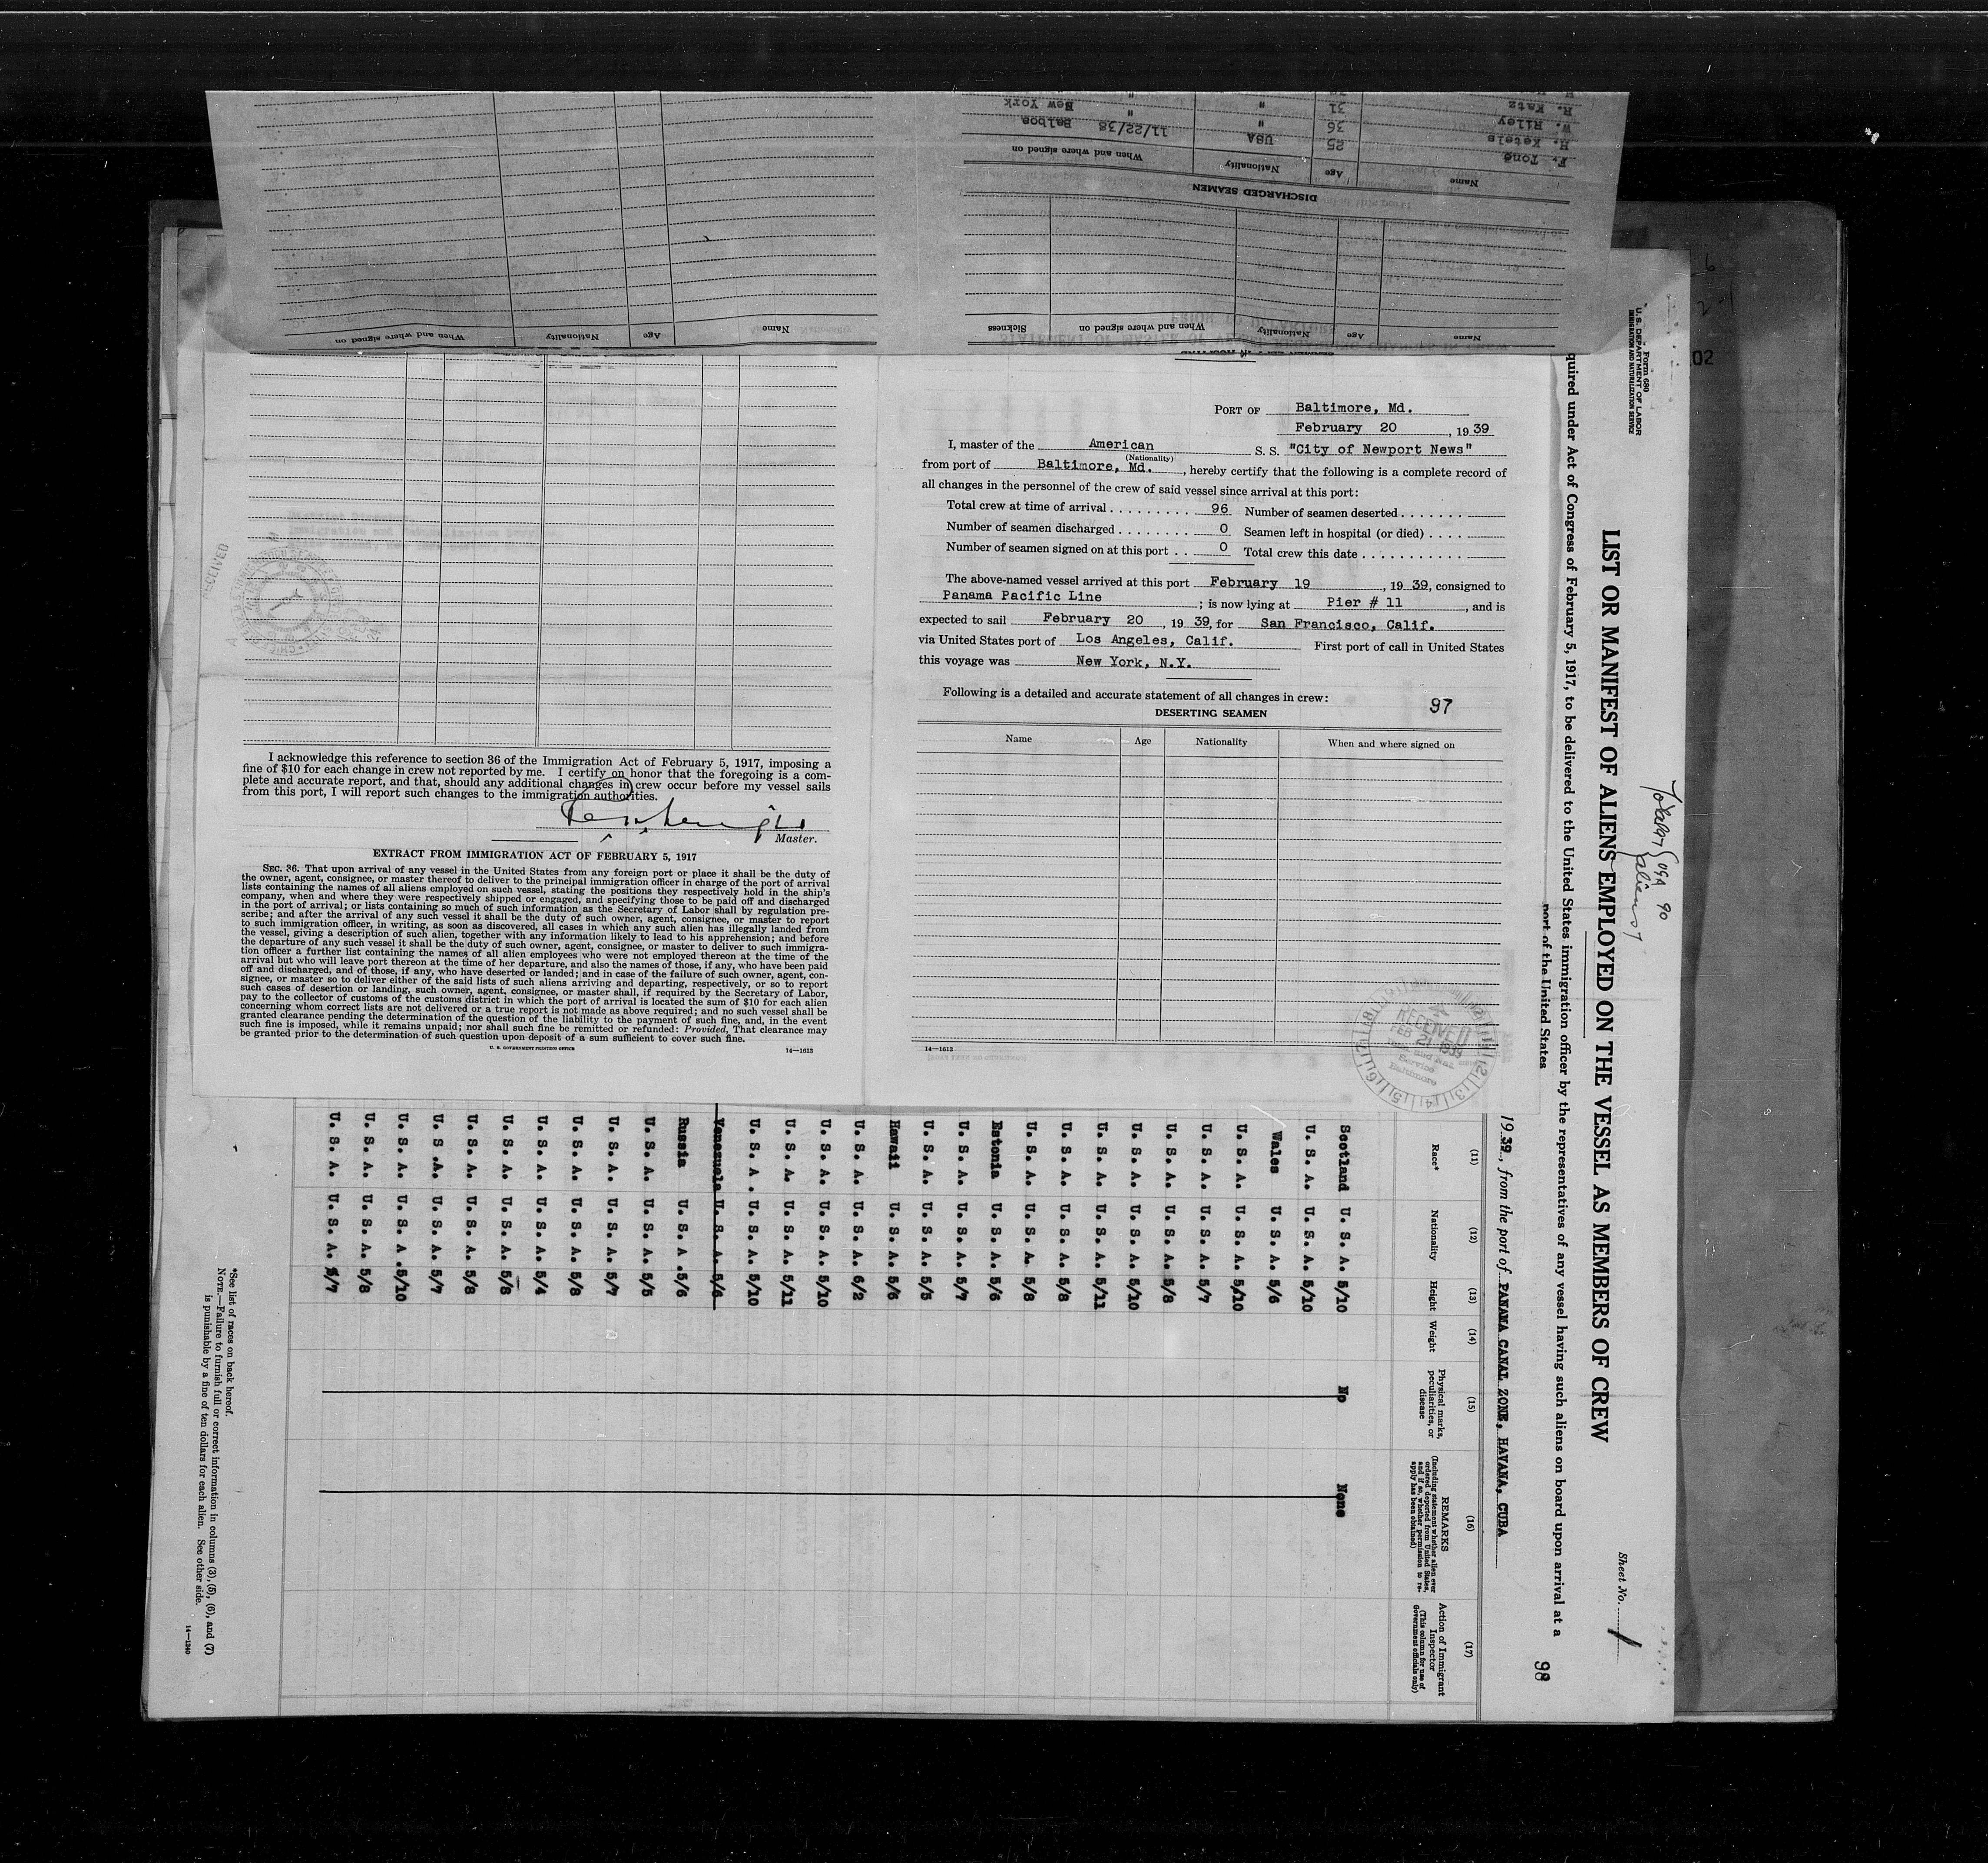 F. Tone
H. Ketels 25 USA 11/22/38 Balboa
W. Riley 36 " "
R. Katz 31 " New York
Name Age Nationality When and where signed on
DISCHARGED SEAMEN
Name Age Nationality When and where signed on Sickness
Name Age Nationality When and where signed on
PORT OF Baltimore, Md.
February 20, 1939
I, master of the American S. S. "City of Newport News"
(Nationality)
from port of Baltimore, Md., hereby certify that the following is a complete record of
all changes in the personnel of the crew of said vessel since arrival at this port:
Total crew at time of arrival . . . . . . . . . 96 Number of seamen deserted . . . . . . .
Number of seamen discharged . . . . . . . . 0 Seamen left in hospital (or died) . . . .
Number of seamen signed on at this port . . 0 Total crew this date . . . . . . . . . . .
The above-named vessel arrived at this port February 19, 1939, consigned to
Panama Pacific Line; is now lying at Pier # 11, and is
expected to sail February 20, 1939, for San Francisco, Calif.
via United States port of Los Angeles, Calif. First port of call in United States
this voyage was New York, N.Y.
Following is a detailed and accurate statement of all changes in crew:
97
DESERTING SEAMEN
Name Age Nationality When and where signed on
14—1613
RECEIVED
FEB 21 1939
Service
Baltimore
RECEIVED
I acknowledge this reference to section 36 of the Immigration Act of February 5, 1917, imposing a
fine of $10 for each change in crew not reported by me. I certify on honor that the foregoing is a com-
plete and accurate report, and that, should any additional changes in crew occur before my vessel sails
from this port, I will report such changes to the immigration authorities.
Master.
EXTRACT FROM IMMIGRATION ACT OF FEBRUARY 5, 1917
SEC. 36. That upon arrival of any vessel in the United States from any foreign port or place it shall be the duty of
the owner, agent, consignee, or master thereof to deliver to the principal immigration officer in charge of the port of arrival
lists containing the names of all aliens employed on such vessel, stating the positions they respectively hold in the ship's
company, when and where they were respectively shipped or engaged, and specifying those to be paid off and discharged
in the port of arrival; or lists containing so much of such information as the Secretary of Labor shall by regulation pre-
scribe; and after the arrival of any such vessel it shall be the duty of such owner, agent, consignee, or master to report
to such immigration officer, in writing, as soon as discovered, all cases in which any such alien has illegally landed from
the vessel, giving a description of such alien, together with any information likely to lead to his apprehension; and before
the departure of any such vessel it shall be the duty of such owner, agent, consignee, or master to deliver to such immigra-
tion officer a further list containing the names of all alien employees who were not employed thereon at the time of the
arrival but who will leave port thereon at the time of her departure, and also the names of those, if any, who have been paid
off and discharged, and of those, if any, who have deserted or landed; and in case of the failure of such owner, agent, con-
signee, or master so to deliver either of the said lists of such aliens arriving and departing, respectively, or so to report
such cases of desertion or landing, such owner, agent, consignee, or master shall, if required by the Secretary of Labor,
pay to the collector of customs of the customs district in which the port of arrival is located the sum of $10 for each alien
concerning whom correct lists are not delivered or a true report is not made as above required; and no such vessel shall be
granted clearance pending the determination of the question of the liability to the payment of such fine, and, in the event
such fine is imposed, while it remains unpaid; nor shall such fine be remitted or refunded: Provided, That clearance may
be granted prior to the determination of such question upon deposit of a sum sufficient to cover such fine.
U. S. GOVERNMENT PRINTING OFFICE 14—1613
02
Form 680
U. S. DEPARTMENT OF LABOR
IMMIGRATION AND NATURALIZATION SERVICE
USA 90
aliens 7
Sheet No. 1
LIST OR MANIFEST OF ALIENS EMPLOYED ON THE VESSEL AS MEMBERS OF CREW
quired under Act of Congress of February 5, 1917, to be delivered to the United States immigration officer by the representatives of any vessel having such aliens on board upon arrival at a
port of the United States
98
1939, from the port of PANAMA CANAL ZONE, HAVANA, CUBA
(11) (12) (13) (14) (15) (16) (17)
Race* Nationality Height Weight Physical marks, peculiarities, or disease REMARKS (Including statement whether alien ever ordered deported from United States, and if so, whether permission to re-apply has been obtained) Action of Immigrant Inspector (This column for use of Government officials only)
Scotland U. S. A. 5/10 No None
U. S. A. U. S. A. 5/10
Wales U. S. A. 5/6
U. S. A. U. S. A. 5/10
U. S. A. U. S. A. 5/7
U. S. A. U. S. A. 5/8
U. S. A. U. S. A. 5/10
U. S. A. U. S. A. 5/11
U. S. A. U. S. A. 5/8
U. S. A. U. S. A. 5/8
Estonia U. S. A. 5/6
U. S. A. U. S. A. 5/7
U. S. A. U. S. A. 5/5
Hawaii U. S. A. 5/6
U. S. A. U. S. A. 6/2
U. S. A. U. S. A. 5/10
U. S. A. U. S. A. 5/11
U. S. A. U. S. A. 5/10
Venezuela U. S. A. 5/6
Russia U. S. A. 5/6
U. S. A. U. S. A. 5/5
U. S. A. U. S. A. 5/7
U. S. A. U. S. A. 5/8
U. S. A. U. S. A. 5/4
U. S. A. U. S. A. 5/8
U. S. A. U. S. A. 5/8
U. S. A. U. S. A. 5/7
U. S. A. U. S. A. 5/10
U. S. A. U. S. A. 5/8
U. S. A. U. S. A. 5/7
*See list of races on back hereof.
NOTE.—Failure to furnish full or correct information in columns (3), (5), (6), and (7)
is punishable by a fine of ten dollars for each alien. See other side.
14—1240